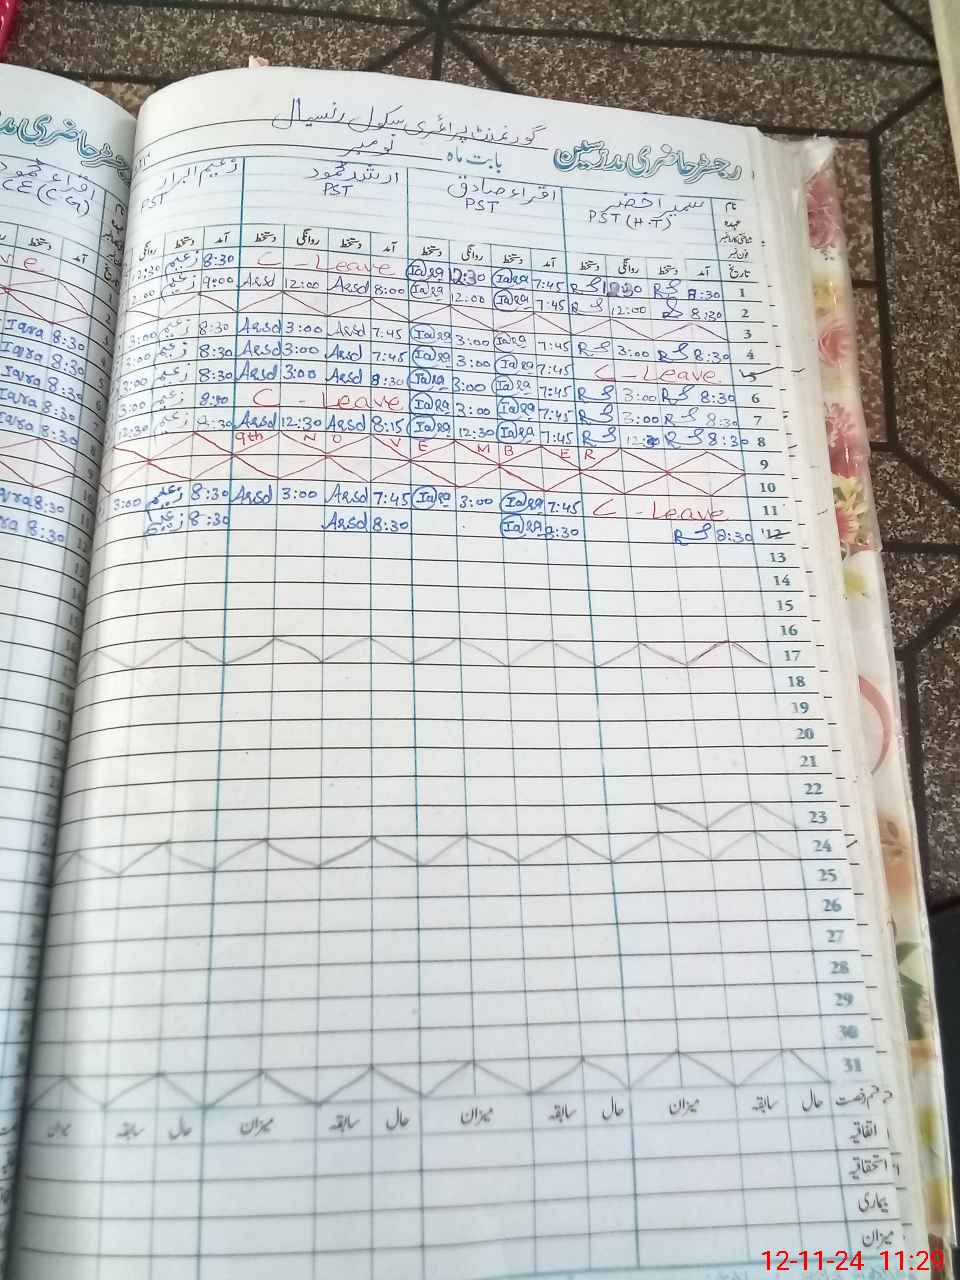 رجسٹر حاضری مدرسین
گورنمنٹ پرائمری سکول رنسیال
بابت ماہ نومبر
نام سمیرا خضر اقراء صادق ارشد محمود زعیم ابرار
عہدہ PST (H.T) PST PST PST
تاریخ آمد دستخط روانگی دستخط آمد دستخط روانگی دستخط آمد دستخط روانگی دستخط آمد دستخط روانگی
1 8:30 12:30 7:45 12:30 C - Leave 8:30 زعیم
2 8:30 12:00 7:45 12:00 8:00 Arsd 12:00 Arsd 9:00 زعیم
3
4 8:30 3:00 7:45 3:00 7:45 Arsd 3:00 Arsd 8:30 زعیم 3:00
5 C - Leave 7:45 3:00 7:45 Arsd 3:00 Arsd 8:30 زعیم
6 8:30 3:00 7:45 3:00 8:30 Arsd 3:00 Arsd 8:30 زعیم
7 8:30 3:00 7:45 3:00 C - Leave زعیم 3:00
8 8:30 7:45 12:30 8:15 Arsd 12:30 Arsd 8:30 زعیم 12:30
9 9th NOVEMBER
10
11 C - Leave 7:45 3:00 7:45 Arsd 3:00 Arsd 8:30 زعیم 3:00
12 8:30 8:30 8:30 Arsd 8:30 زعیم
13
14
15
16
17
18
19
20
21
22
23
24
25
26
27
28
29
30
31
قسم رخصت حال سابقہ میزان حال سابقہ میزان حال سابقہ میزان حال سابقہ میزان
اتفاقیہ
استحقاقیہ
بیماری
میزان
رجسٹر حاضری مد
اقراء محمود
Iqra 8:30
Iqra 8:30
Iqra 8:30
Iqra 8:30
Iqra 8:30
Iqra 8:30
Iqra 8:30
12-11-24 11:29